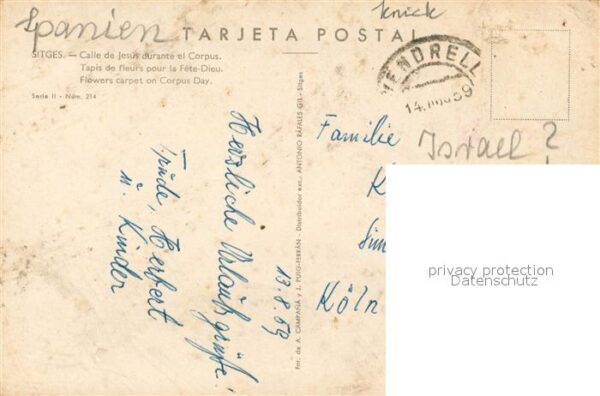 Spanien
Knick
TARJETA POSTAL
SITGES. — Calle de Jesús durante el Corpus.
Tapis de fleurs pour la Fête-Dieu.
Flowers carpet on Corpus Day.
Serie II - Núm. 214
VENDRELL
14. 59
Israel?
13.8.59
Herzliche Urlaubsgrüße!
Trude, Herbert
u. Kinder
Fot. de A. CAMPAÑÁ y J. PUIG-FERRÁN - Distribuidor exc., ANTONIO RÁFALES GIL - Sitges
Familie
K
Köln
privacy protection
Datenschutz